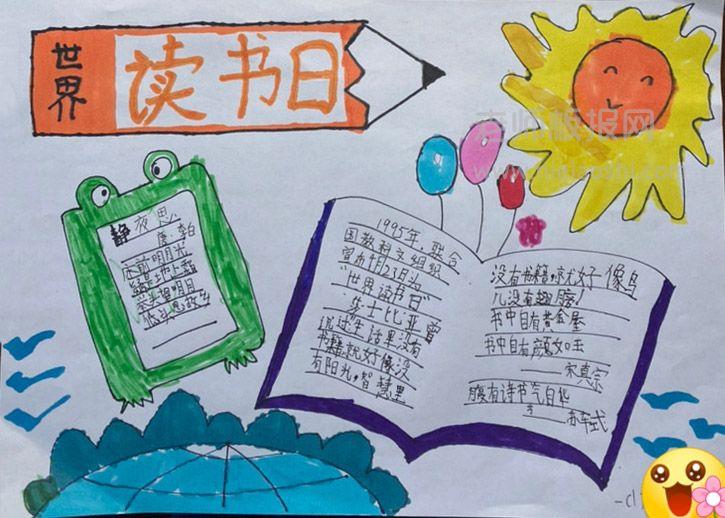 世界
读书日
老师板报网
静夜思
唐:李白
床前明月光
疑是地上霜
举头望明月
低头思故乡
1995年,联合
国教科文组织
宣布4月23日为
"世界读书日"
莎士比亚曾
说过生活里没有
书籍,就好像没
有阳光,智慧里
没有书籍,就好像鸟
儿没有翅膀!
书中自有黄金屋
书中自有颜如玉
——宋真宗
腹有诗书气自华
苏轼